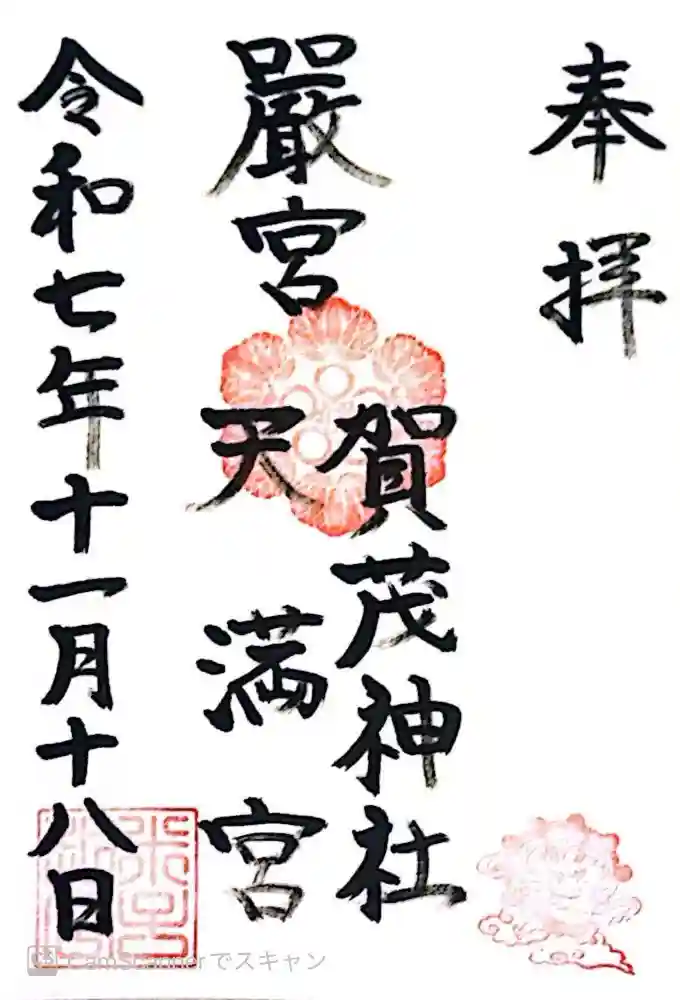 奉拝
嚴宮
賀茂神社
天満宮
令和七年十一月十八日
CamScannerでスキャン